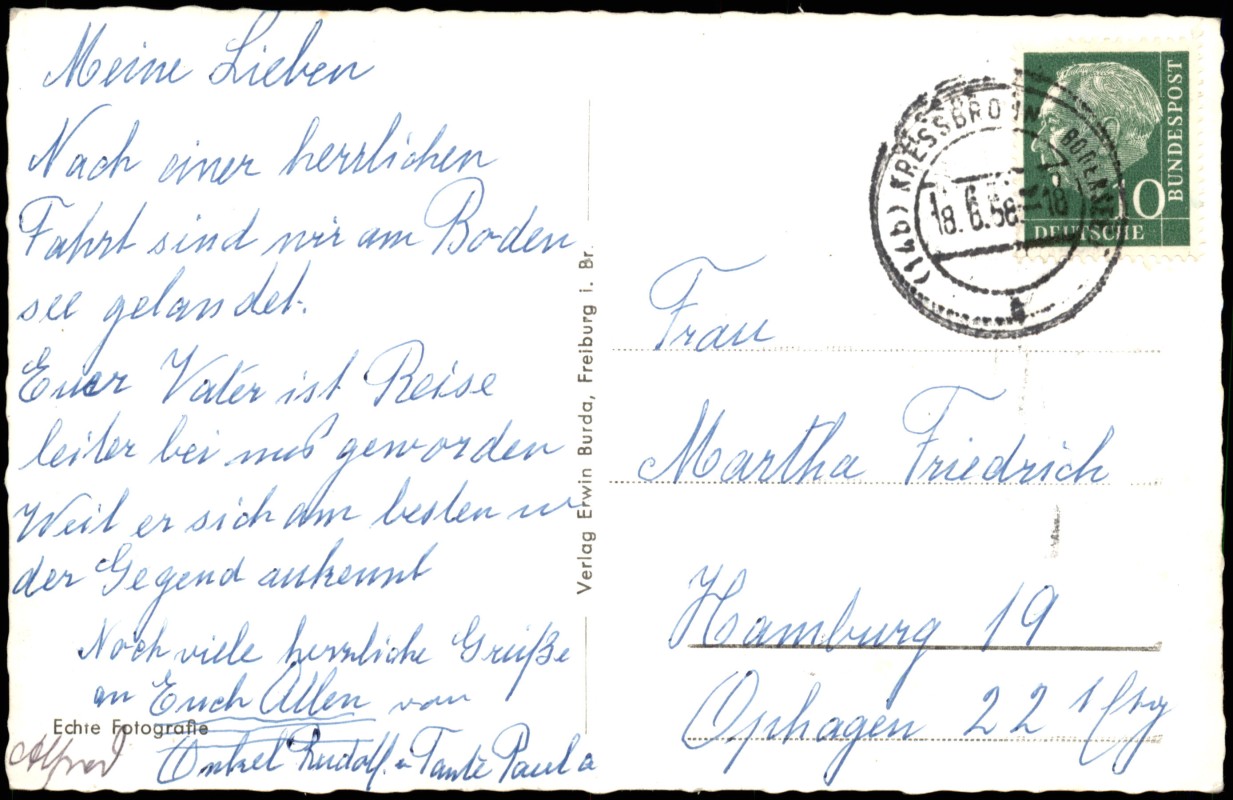 Meine Lieben
Nach einer herrlichen
Fahrt sind wir am Boden
see gelandet.
Euer Vater ist Reise
leiter bei uns geworden
Weil er sich am besten in
der Gegend auskennt
Noch viele herzliche Grüße
an Euch Allen von
Onkel Rudolf u Tante Paula
Alfred
Echte Fotografie
Verlag Erwin Burda, Freiburg i. Br.
(14b) KRESSBRONN BODENSEE
18.6.58.-18
10
BUNDESPOST
DEUTSCHE
Frau
Martha Friedrich
Hamburg 19
Ophagen 22